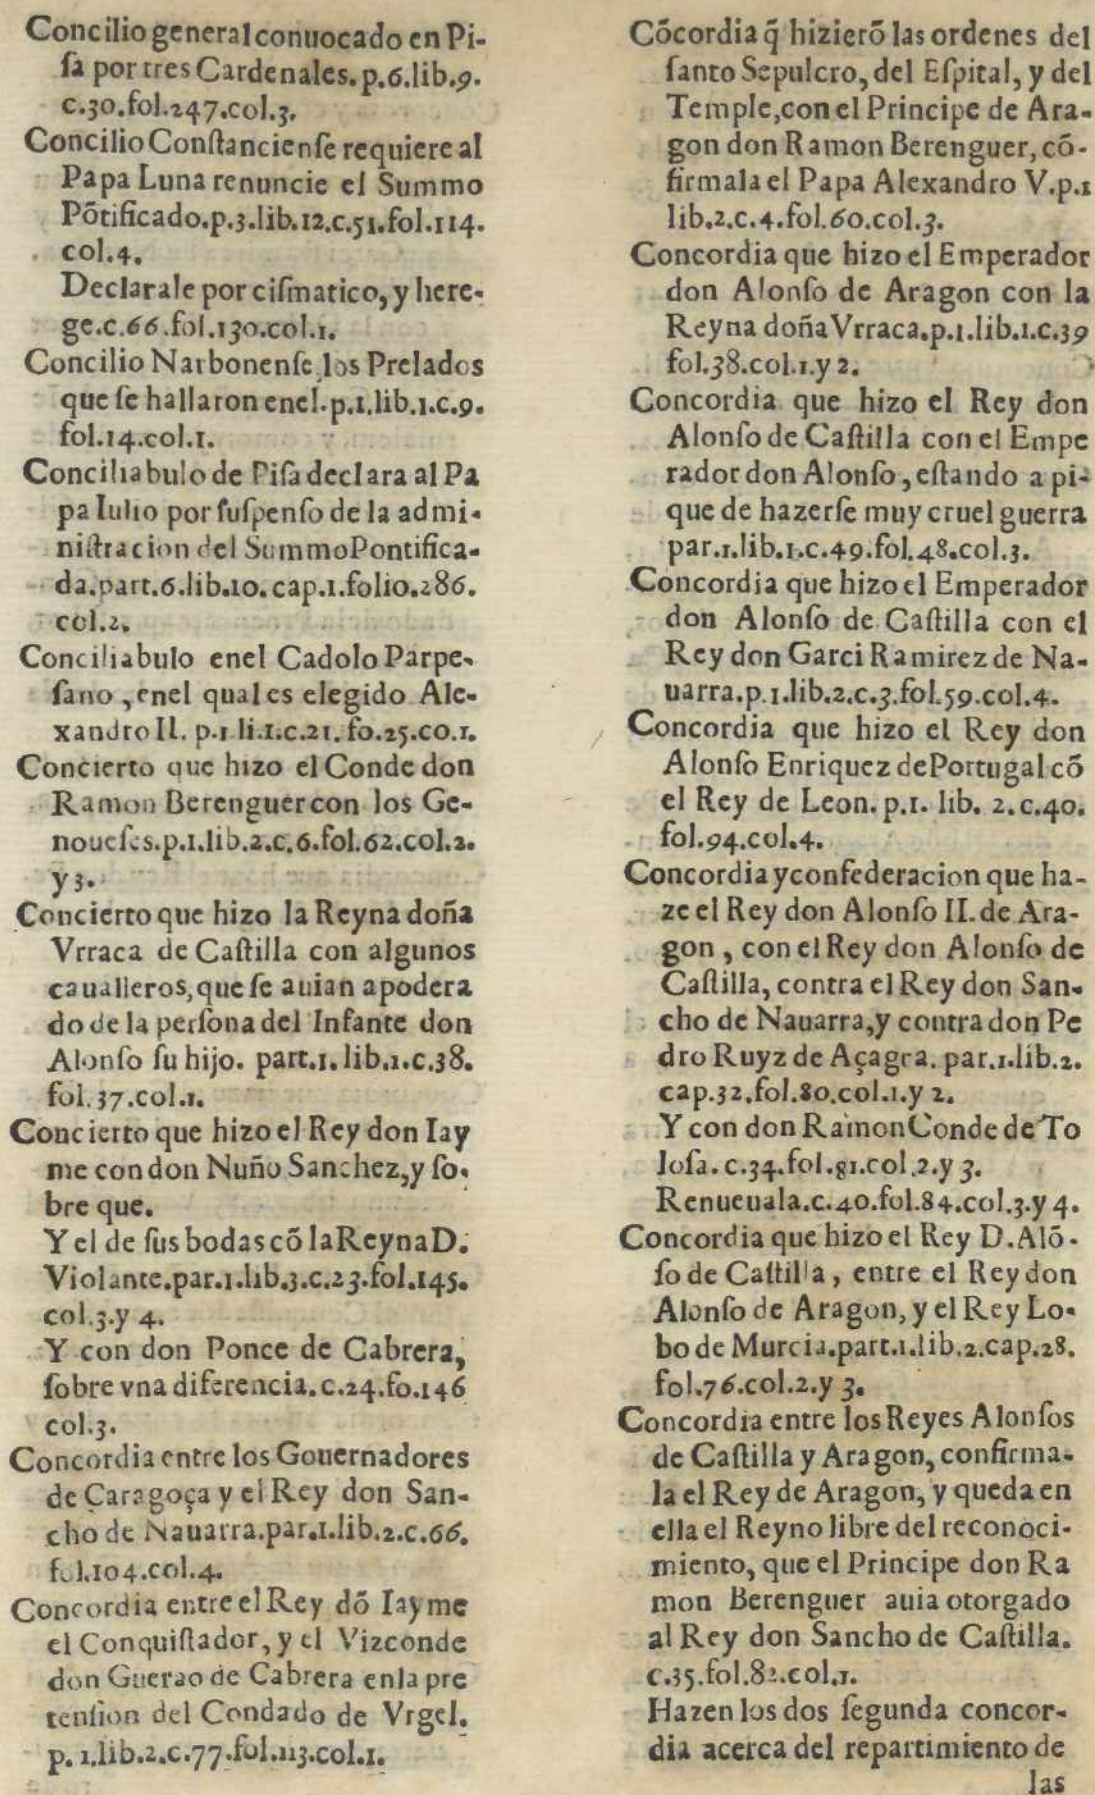 Concilio general conuocado en Pi-
ſa por tres Cardenales. p.6.lib.9.
c.30.fol.247.col.3.
Concilio Conſtancienſe requiere al
Papa Luna renuncie el Summo
Põtificado.p.3.lib.12.c.51.fol.114.
col.4.
Declarale por ciſmatico, y here-
ge.c.66.fol.130.col.1.
Concilio Narbonenſe, los Prelados
que ſe hallaron enel.p.1.lib.1.c.9.
fol.14.col.1.
Conciliabulo de Piſa declara al Pa
pa Iulio por ſuſpenſo de la admi-
niſtracion del Summo Pontifica-
da.part.6.lib.10.cap.1.folio.286.
col.2.
Conciliabulo enel Cadolo Parpe-
ſano, enel qual es elegido Ale-
xandro II. p.1 li.1.c.21. fo.25.co.1.
Concierto que hizo el Conde don
Ramon Berenguer con los Ge-
noueſes.p.1.lib.2.c.6.fol.62.col.2.
y 3.
Concierto que hizo la Reyna doña
Vrraca de Caſtilla con algunos
caualleros, que ſe auian apodera
do de la perſona del Infante don
Alonſo ſu hijo. part.1.lib.1.c.38.
fol.37.col.1.
Concierto que hizo el Rey don Iay
me con don Nuño Sanchez, y ſo-
bre que.
Y el de ſus bodas cõ la Reyna D.
Violante.par.1.lib.3.c.23.fol.145.
col.3.y 4.
Y con don Ponce de Cabrera,
ſobre vna diferencia. c.24.fo.146
col.3.
Concordia entre los Gouernadores
de Çaragoça y el Rey don San-
cho de Nauarra.par.1.lib.2.c.66.
fol.104.col.4.
Concordia entre el Rey dõ Iayme
el Conquiſtador, y el Vizconde
don Guerao de Cabrera enla pre
tenſion del Condado de Vrgel.
p. 1.lib.2.c.77.fol.113.col.1.
Cõcordia q̃ hizierõ las ordenes del
ſanto Sepulcro, del Eſpital, y del
Temple, con el Principe de Ara-
gon don Ramon Berenguer, cõ-
firmala el Papa Alexandro V.p.1
lib.2.c.4.fol.60.col.3.
Concordia que hizo el Emperador
don Alonſo de Aragon con la
Reyna doña Vrraca.p.1.lib.1.c.39
fol.38.col.1.y 2.
Concordia que hizo el Rey don
Alonſo de Caſtilla con el Empe
rador don Alonſo, eſtando a pi-
que de hazerſe muy cruel guerra
par.1.lib.1.c.49.fol.48.col.3.
Concordia que hizo el Emperador
don Alonſo de Caſtilla con el
Rey don Garci Ramirez de Na-
uarra.p.1.lib.2.c.3.fol.59.col.4.
Concordia que hizo el Rey don
Alonſo Enriquez de Portugal cõ
el Rey de Leon. p.1. lib. 2.c.40.
fol.94.col.4.
Concordia y confederacion que ha-
ze el Rey don Alonſo II. de Ara-
gon, con el Rey don Alonſo de
Caſtilla, contra el Rey don San-
cho de Nauarra, y contra don Pe
dro Ruyz de Açagra. par.1.lib.2.
cap.32.fol.80.col.1.y 2.
Y con don Ramon Conde de To
loſa. c.34.fol.81.col.2.y 3.
Renueuala.c.40.fol.84.col.3.y 4.
Concordia que hizo el Rey D. Alõ-
ſo de Caſtilla, entre el Rey don
Alonſo de Aragon, y el Rey Lo-
bo de Murcia.part.1.lib.2.cap.28.
fol.76.col.2.y 3.
Concordia entre los Reyes Alonſos
de Caſtilla y Aragon, confirma-
la el Rey de Aragon, y queda en
ella el Reyno libre del reconoci-
miento, que el Principe don Ra
mon Berenguer auia otorgado
al Rey don Sancho de Caſtilla.
c.35.fol.82.col.1.
Hazen los dos ſegunda concor-
dia acerca del repartimiento de
las